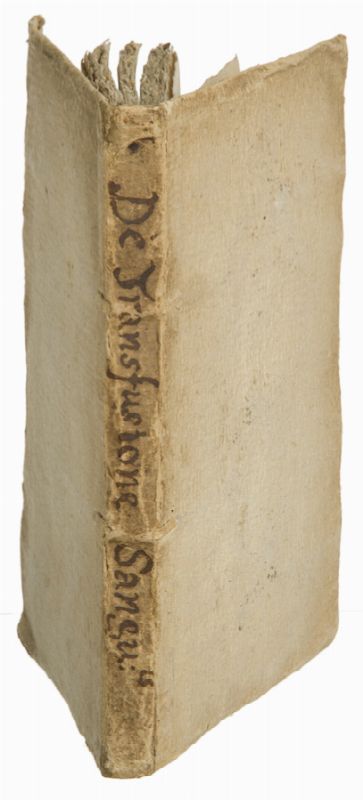 De Transfusione Sangu: